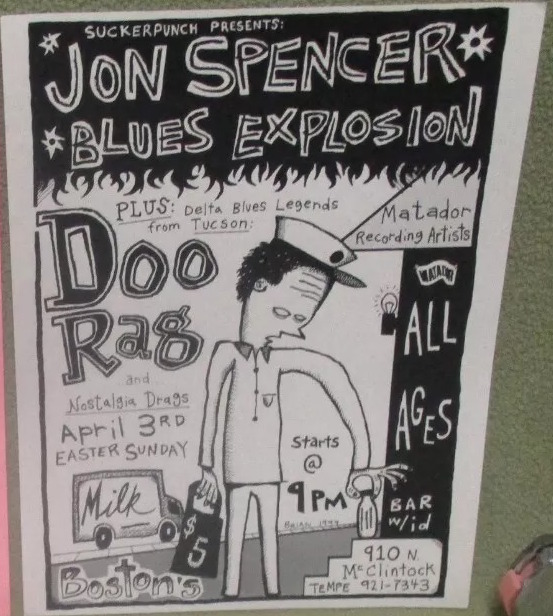 SUCKERPUNCH PRESENTS:
JON SPENCER
BLUES EXPLOSION
PLUS: Delta Blues Legends
from Tucson:
Matador
Recording Artists
Doo
Rag
MATADOR
ALL
AGES
and
Nostalgia Drags
April 3RD
EASTER SUNDAY
Starts
@
9PM
Milk
$
5
BAR
w/id
Boston's
910 N.
McClintock
TEMPE 921-7343